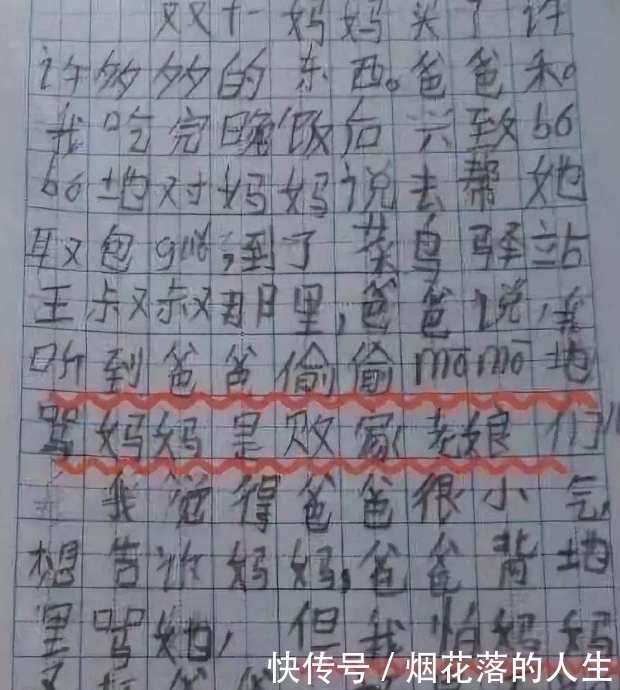 双十一妈妈买了许
许多多的东西。爸爸和
我吃完晚饭后兴致bó
bó地对妈妈说去帮她
取包guǒ,到了菜鸟驿站
王叔叔那里,爸爸说,
听到爸爸偷偷mōmō地
骂妈妈是败家老娘们儿
我觉得爸爸很小气,
想告诉妈妈,爸爸背地
里骂她,但我怕妈妈
快传号/烟花落的人生